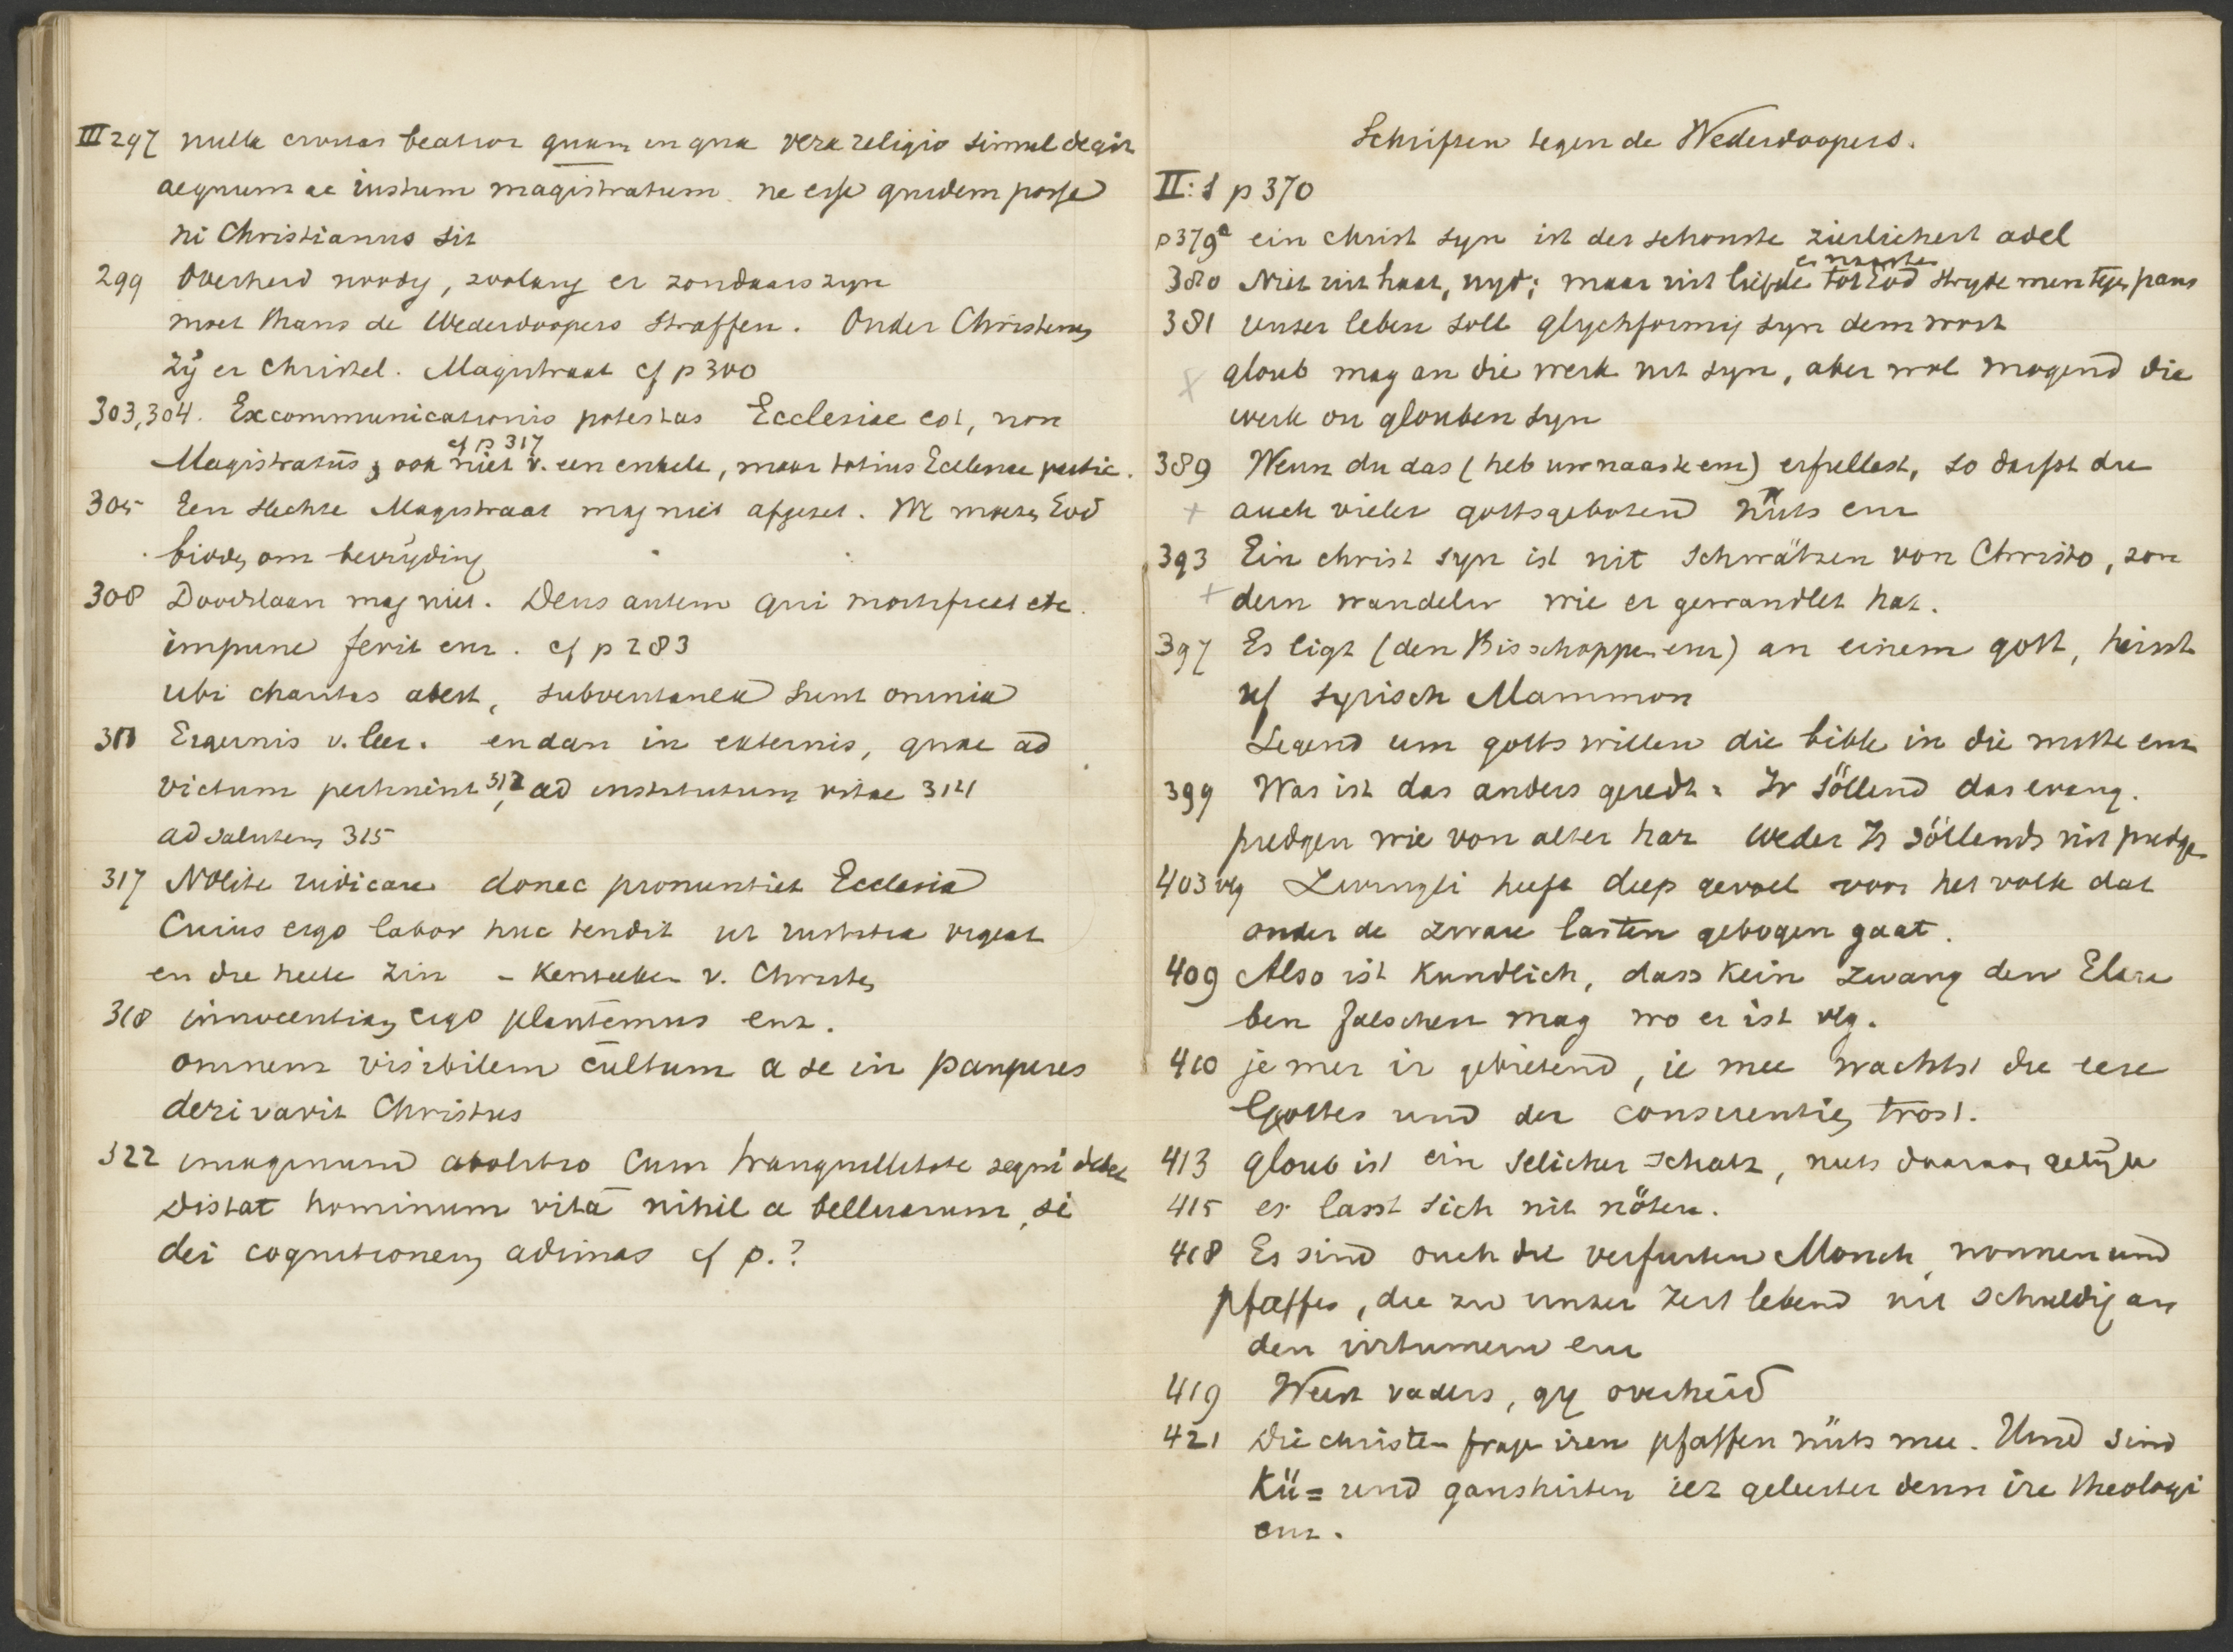 III 297 nulla civitas beatior quam in qua vera religio simul degit
aequum ac iustum magistratum ne esse quidem posse
ni Christianus sit
299 Overheid noodig, zoolang er zondaars zyn
moet thans de Wederdoopers straffen. Onder Christenen
zÿ er Christel. Magistraat cf p 300
303, 304. Excommunicationis potestas Ecclesiae est, non
cf p 317
Magistratus, ook niet v. een enkele, maar totius Ecclesiae partic.
305 Een slechte Magistraat mag niet afgezet. We moeten God
bidden om bevrÿding
308 Doodslaan mag niet. Deus autem qui mortificat etc.
impune ferit enz. cf p 283
ubi charitas abest, subventanea sunt omnia
311 Ergernis v. leer. en dan in externis, quae ad
victum pertinent 312, ad institutum vitae 314
ad salutem 315
317 Nolite iudicare donec pronuntiet Ecclesia
Cuius ergo labor huc tendit ut iustitia vigeat
en die heele zin - Kenteeken v. Christen
318 innocentiam ergo plantemus enz.
omnem visibilem cultum a se in pauperes
derivavit Christus
322 imaginum abolitio cum tranquillitate segui debet
Distat hominum vita nihil a belluarum, si
dei cognitionem adimas cf p.?
Schriften tegen de Wederdoopers.
II: 1 p 370
p 379a ein christ syn ist der schonste zierlichest adel
380 Niet uit haat, nyd; maar uit liefde tot God en naasten stryde men tegen paus
381 Unser leben soll glychformig syn dem wort
gloub mag an die werk nit syn, aber wol mogend die
werk on glouben syn
389 Wenn du das (heb uw naaste enz) erfullest, so darfst du
+ auch vieler gottsgebotend nüts enz
393 Ein christ syn ist nit schwätzen von Christo, son
+ dern wandeln wie er gewandlet hat.
397 Es ligt (den Bisschoppen enz) an einem gott, heisst
uf syrisch Mammon
Legend um gotts willen die bible in die mitte enz
399 Was ist das anders geredt: Ir söllend das evang.
predgen wie von alter har weder Ir söllends nit predgen
403 vlg Zwingli heeft diep gevoel voor het volk dat
onder de zware lasten gebogen gaat.
409 Also ist kundlich, dass kein zwang den Glou
ben faelschen mag wo er ist vlg.
410 je mer ir gebietend, ie mee wachtst die eere
Gottes und der conscientien trost.
413 gloub ist ein selicher schatz, nuts daaraan gelÿk
415 er lasst sich nit nöten.
418 Es sind ouch die verfurten Monch, nonnen und
pfaffen, die zu unser zeit lebend nit schuldig an
den irrtumern enz
419 Weest vaders, gy overheid
421 Die christen frage iren pfaffen nüts mee. Und sind
Kü= und ganshirten iez geleerter denn ire theologi
enz.